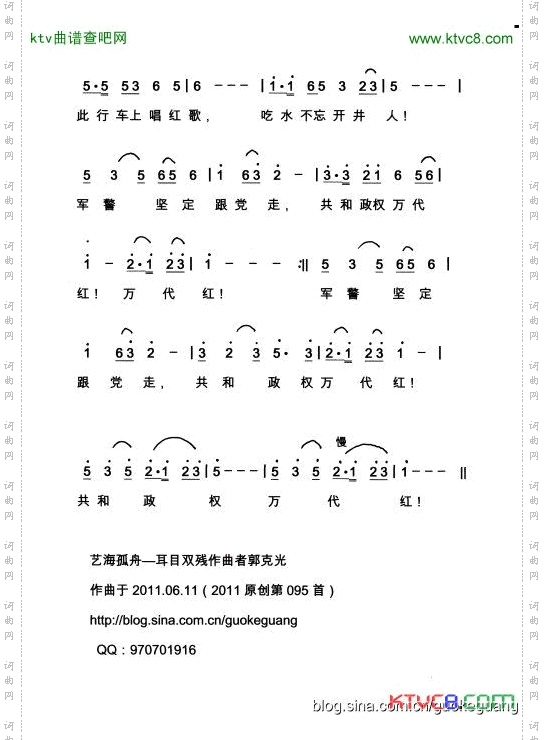 ktv曲谱查吧网 www.ktvc8.com
5·5 53 6 5 | 6 - - - | 1·1 65 3 23 | 5 - - - |
此行车上唱红歌， 吃水不忘开井人！
5 3 5 65 6 | 1 63 2 - | 3·3 21 6 56 |
军警坚定跟党走， 共和政权万代
1 - 2·1 23 | 1 - - - :|| 5 3 5 65 6 |
红！万代红！ 军警坚定
1 63 2 - | 3 2 3 5· 3 | 2·1 23 1 - |
跟党走， 共和政权万代红！
慢
5 3 5 2·1 23 | 5 - - - | 5 3 5 2·1 23 | 1 - - - ||
共和政权万代红！
艺海孤舟—耳目双残作曲者郭克光
作曲于 2011.06.11（2011 原创第 095 首）
http://blog.sina.com.cn/guokeguang
QQ：970701916
KTVC8.COM
blog.sina.com.cn/guokeguang
词曲网